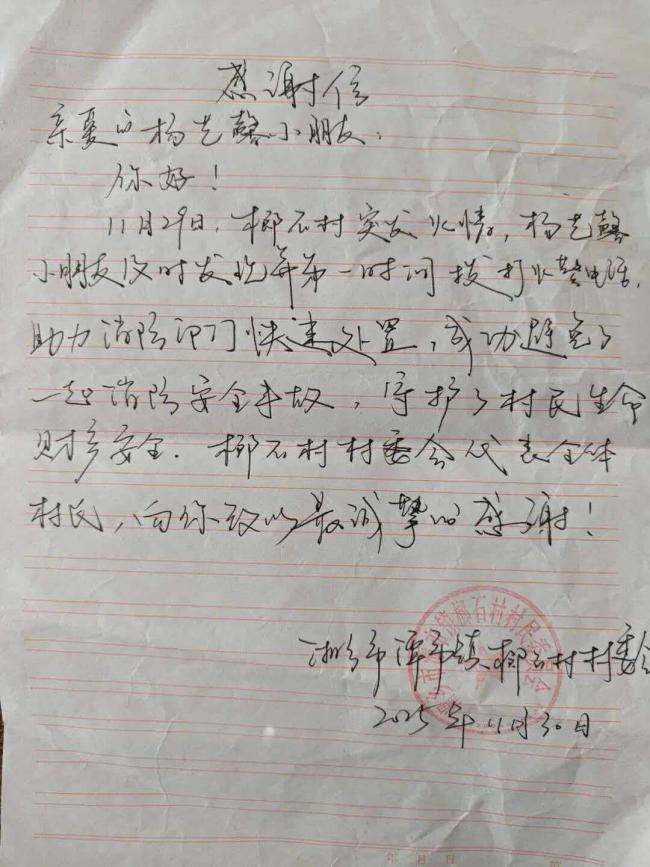 感谢信
亲爱的杨艺馨小朋友：
你好！
11月29日，榔石村突发火情，杨艺馨
小朋友及时发现并第一时间拨打火警电话，
助力消防部门快速处置，成功避免了
一起消防安全事故，守护了村民生命
财产安全。榔石村村委会代表全体
村民，向你致以最诚挚的感谢！
湘乡市潭市镇榔石村村委会
2025年11月30日
年 月 日